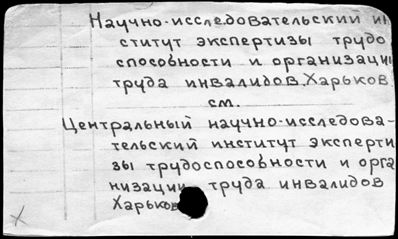 Научно-исследовательский ин
ститут экспертизы трудо
способности и организаци
труда инвалидов. Харьков.
см.
Центральный научно-исследова-
тельский институт эксперти
зы трудоспособности и орга
низации труда инвалидов
Харьков